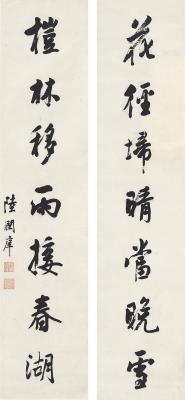 花徑埽晴當晚雪
榿林移雨接春湖
陸潤庠